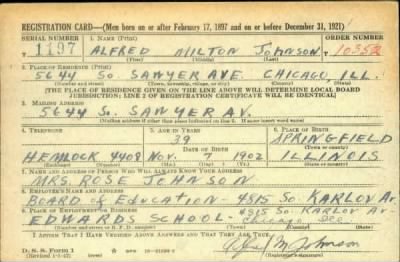 REGISTRATION CARD—(Men born on or after February 17, 1897 and on or before December 31, 1921)
SERIAL NUMBER 1. NAME (Print) ORDER NUMBER
T 1197 ALFRED MILTON JOHNSON 10352
(First) (Middle) (Last)
2. PLACE OF RESIDENCE (Print)
5644 SO. SAWYER AVE. CHICAGO, ILL.
(Number and street) (Town, township, village, or city) (County) (State)
[THE PLACE OF RESIDENCE GIVEN ON THE LINE ABOVE WILL DETERMINE LOCAL BOARD
JURISDICTION; LINE 2 OF REGISTRATION CERTIFICATE WILL BE IDENTICAL]
3. MAILING ADDRESS
5644 SO. SAWYER AV.
(Mailing address if other than place indicated on line 2. If same insert word same)
4. TELEPHONE 5. AGE IN YEARS 6. PLACE OF BIRTH
39 SPRINGFIELD
DATE OF BIRTH (Town or county)
HEMLOCK 4408 NOV. 7 1902 ILLINOIS
(Exchange) (Number) (Mo.) (Day) (Yr.) (State or country)
7. NAME AND ADDRESS OF PERSON WHO WILL ALWAYS KNOW YOUR ADDRESS
MRS. ROSE JOHNSON
8. EMPLOYER'S NAME AND ADDRESS
BOARD OF EDUCATION - 4815 SO. KARLOV AV.
9. PLACE OF EMPLOYMENT OR BUSINESS
EDWARDS SCHOOL - 4815 SO. KARLOV AV.
CHICAGO ILL.
(Number and street or R. F. D. number) (Town) (County) (State)
I AFFIRM THAT I HAVE VERIFIED ABOVE ANSWERS AND THAT THEY ARE TRUE.
D. S. S. Form 1
Alfred M. Johnson